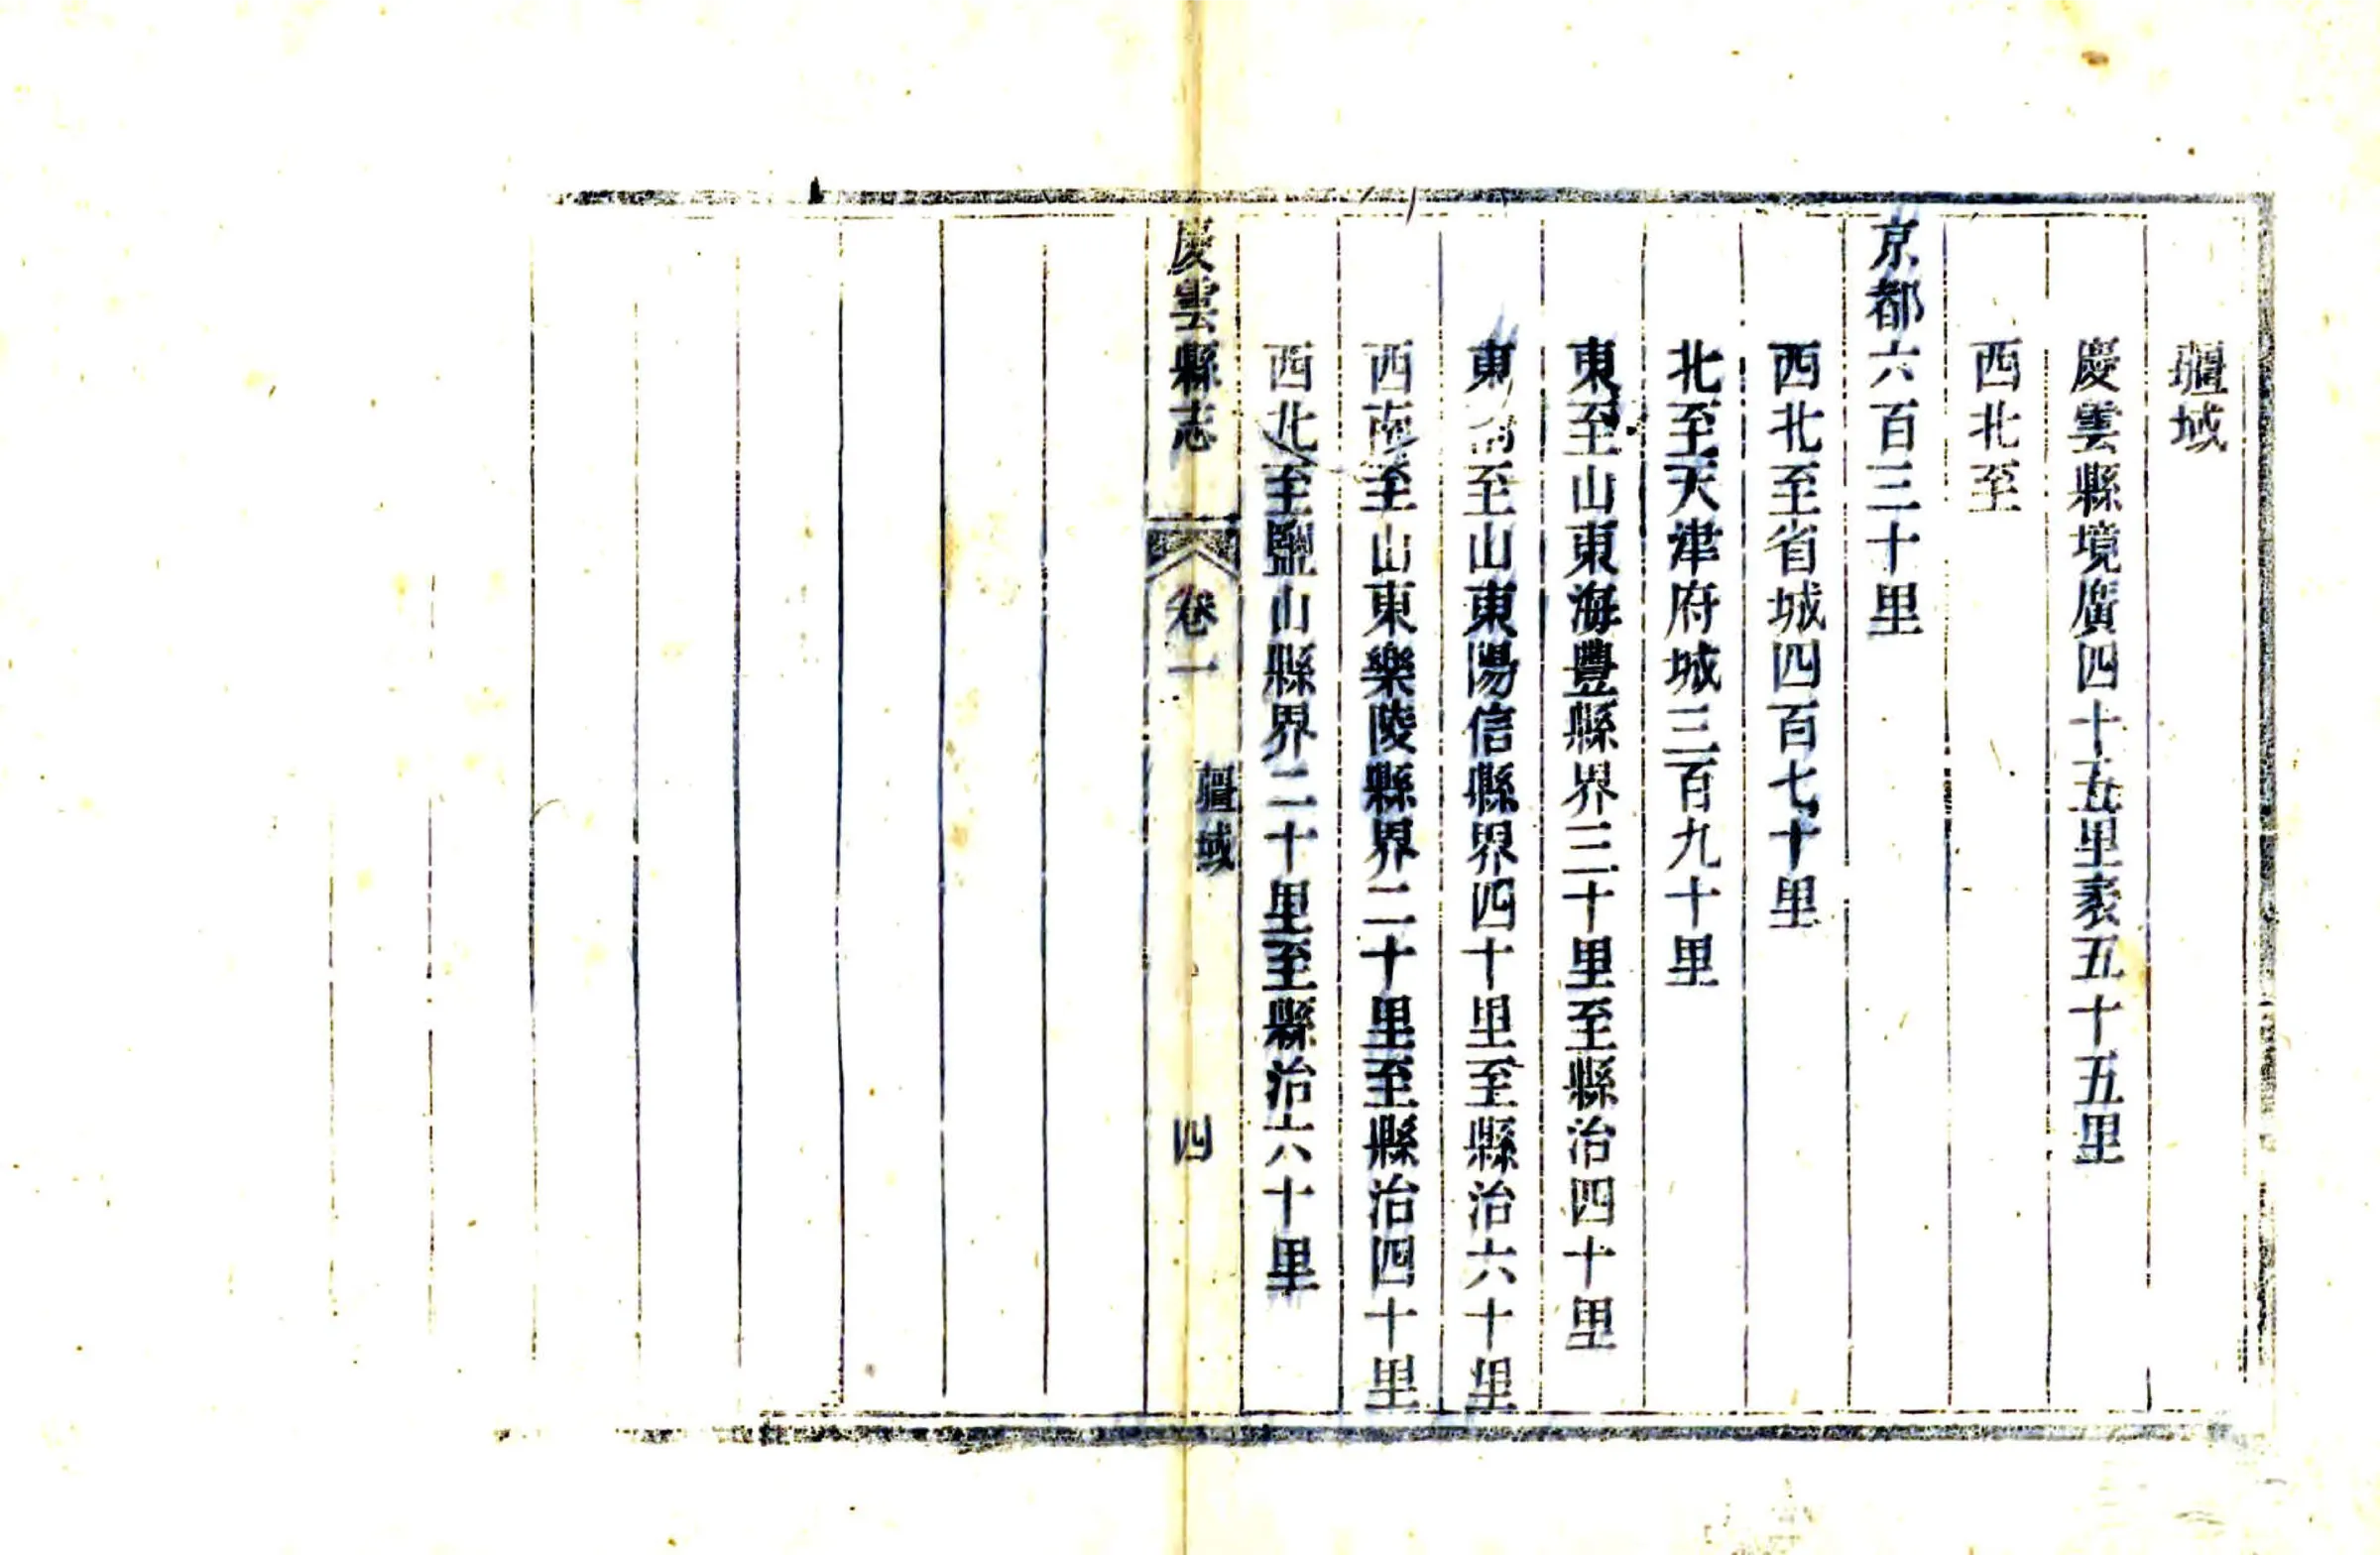 疆域
慶雲縣境廣四十五里袤五十五里
西北至
京都六百三十里
西北至省城四百七十里
北至天津府城三百九十里
東至山東海豐縣界三十里至縣治四十里
東南至山東陽信縣界四十里至縣治六十里
西南至山東樂陵縣界二十里至縣治四十里
西北至鹽山縣界二十里至縣治六十里
慶雲縣志 卷一 疆域 四